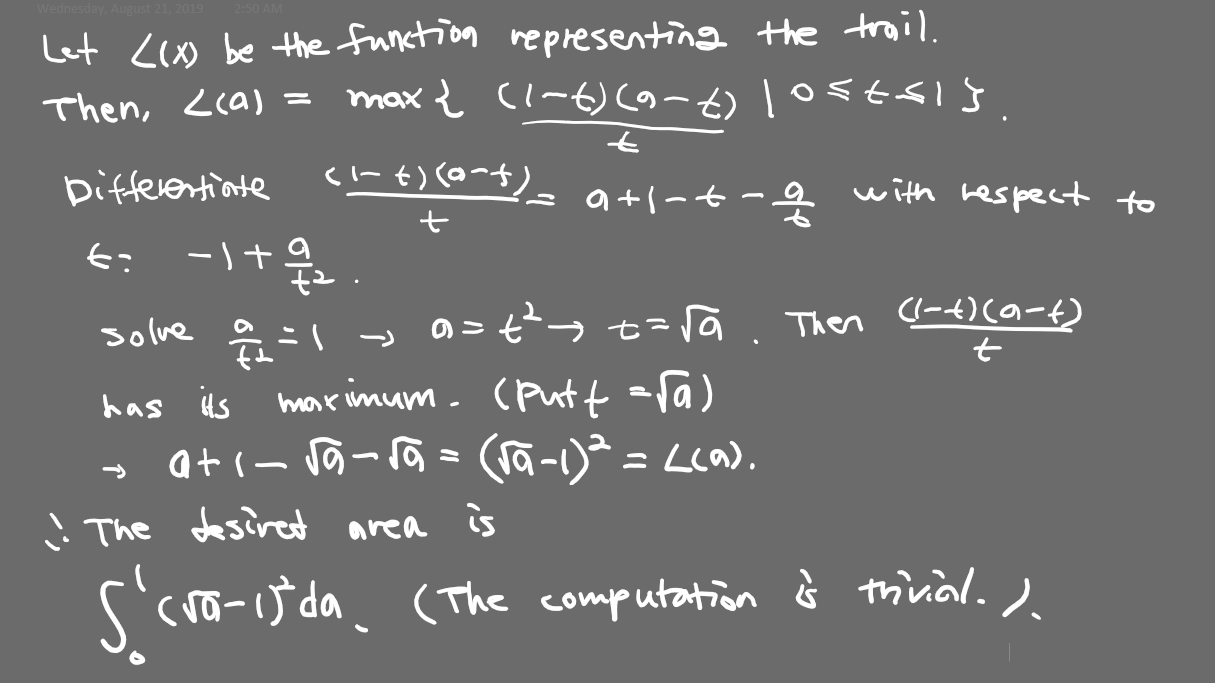 Wednesday, August 21, 2019 2:50 AM
Let L(x) be the function representing the trail.
Then, L(a) = max{ (1-t)(a-t)/t | 0 ≤ t ≤ 1 }.
Differentiate (1-t)(a-t)/t = a+1-t-a/t with respect to
t: -1 + a/t².
solve a/t² = 1 → a = t² → t = √a. Then (1-t)(a-t)/t
has its maximum. (Put t = √a)
→ a+1-√a-√a = (√a-1)² = L(a).
∴ The desired area is
∫₀¹ (√a-1)² da. (The computation is trivial.).